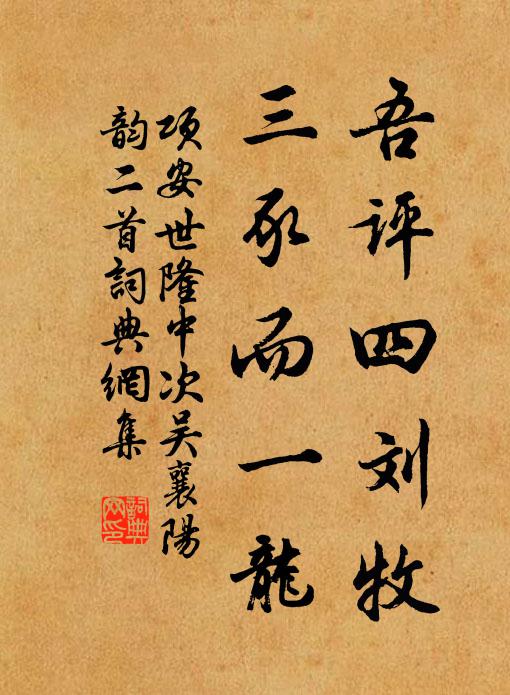 吾评四刘牧
三豕而一龍
项安世隆中次吴襄陽
韵二首詞典網集
詞典网印